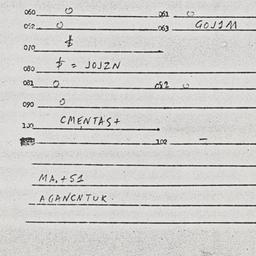 060 0 061 0
062 0 063 GOJ1M
070 $
080 $ = JOJZN
081 0 082 0
090 0
100 CMENTAS+
102 -
MA,+51
AGANCNTUK.